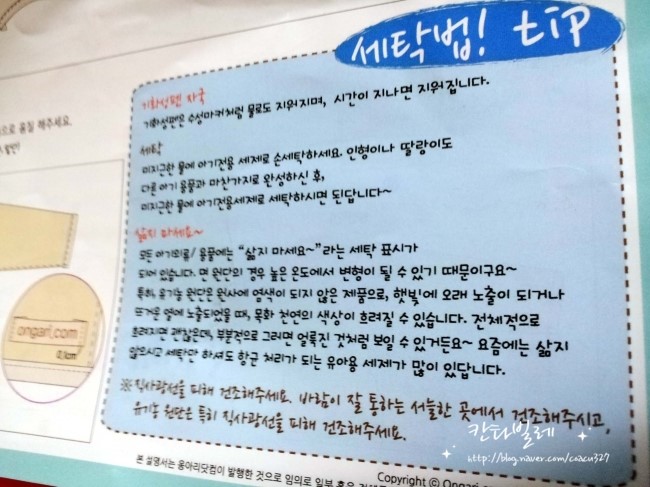 세탁법! tip
기화성펜 자국
기화성펜은 수성마커처럼 물로도 지워지며, 시간이 지나면 지워집니다.
으로 홈질 해주세요.
세탁
미지근한 물에 아기전용 세제로 손세탁하세요. 인형이나 딸랑이도
다른 아기 용품과 마찬가지로 완성하신 후,
미지근한 물에 아기전용세제로 세탁하시면 된답니다~
삶지 마세요~
모든 아기의류/ 용품에는 “삶지 마세요~”라는 세탁 표시가
되어 있습니다. 면 원단의 경우 높은 온도에서 변형이 될 수 있기 때문이구요~
특히, 유기농 원단은 원사에 염색이 되지 않은 제품으로, 햇빛에 오래 노출이 되거나
뜨거운 열에 노출되었을 때, 목화 천연의 색상이 흐려질 수 있습니다. 전체적으로
흐려지면 괜찮은데, 부분적으로 그러면 얼룩진 것처럼 보일 수 있거든요~ 요즘에는 삶지
않으시고 세탁만 하셔도 항균 처리가 되는 유아용 세제가 많이 있답니다.
※ 직사광선을 피해 건조해주세요. 바람이 잘 통하는 서늘한 곳에서 건조해주시고,
유기농 원단은 특히 직사광선을 피해 건조해주세요.
ongari.com
0.1cm
칸타빌레
http://blog.naver.com/coacu327
Copyright ⓒ Ongari
본 설명서는 옹아리닷컴이 발행한 것으로 임의로 일부 혹은